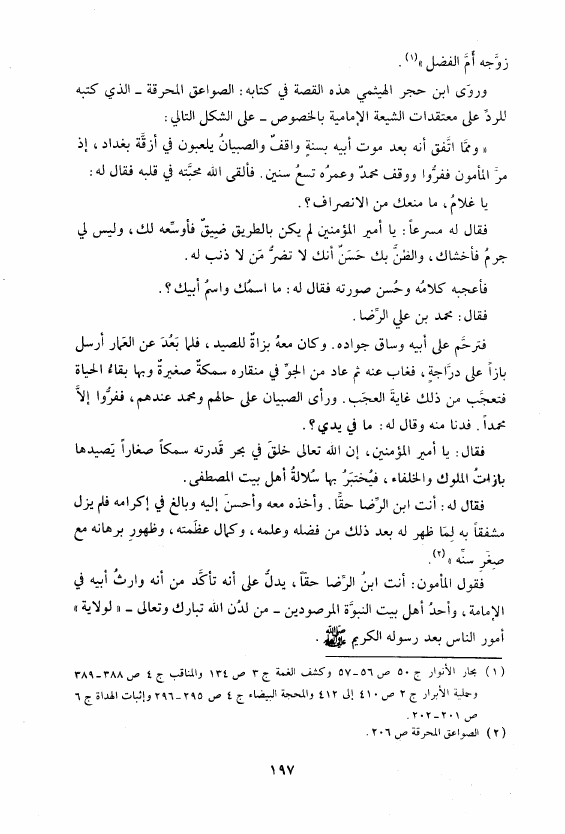 زوَّجه أُمَّ الفضل »(١) .
وروَى ابن حجر الهيثمي هذه القصة في كتابه : الصواعق المحرقة ـ الذي كتبه
للردِّ على معتقدات الشيعة الإمامية بالخصوص ـ على الشكل التالي :
« وممَّا اتَّفق أنه بعد موت أبيه بسنةٍ واقفٌ والصبيانُ يلعبون في أزقَّة بغداد ، إذ
مرَّ المأمون ففرُّوا ووقف محمدٌ وعمرُه تسعُ سنين . فألقى الله محبَّته في قلبه فقال له :
يا غلامُ ، ما منعك من الانصراف ؟ .
فقال له مسرعاً : يا أمير المؤمنين لم يكن بالطريق ضِيقٌ فأوسِّعه لك ، وليس لي
جرمٌ فأخشاك ، والظنُّ بك حَسَنٌ أنك لا تضرُّ مَن لا ذنب له .
فأعجبه كلامُه وحُسن صورته فقال له : ما اسمُك واسمُ أبيك ؟ .
فقال : محمد بن علي الرِّضا .
فترحَّم على أبيه وساق جواده . وكان معهُ بزاةٌ للصيد ، فلما بَعُدَ عن العمار أرسل
بازاً على درَّاجةٍ ، فغاب عنه ثم عاد من الجوِّ في منقاره سمكةٌ صغيرةٌ وبها بقاءُ الحياة
فتعجَّب من ذلك غايةَ العجَب . ورأى الصبيان على حالهم ومحمد عندهم ، ففرُّوا إلاَّ
محمداً . فدنا منه وقال له : ما في يدي ؟ .
فقال : يا أمير المؤمنين ، إن الله تعالى خلقَ في بحر قدرته سمكاً صغاراً يَصيدها
بازاتُ الملوك والخلفاء ، فيُختبَرُ بها سُلالةُ أهل بيت المصطفى .
فقال له : أنت ابن الرِّضا حقًّا . وأخذه معه وأحسنَ إليه وبالغ في إكرامه فلم يزل
مشفقاً به لِمَا ظهر له بعد ذلك من فضله وعلمه ، وكمال عظَمته ، وظهورِ برهانه مع
صِغَر سنِّه »(٢) .
فقول المأمون : أنت ابنُ الرِّضا حقاً ، يدلُّ على أنه تأكَّد من أنه وارثُ أبيه في
الإمامة ، وأحدُ أهل بيت النبوَّة المرصودين ـ من لدُن الله تبارك وتعالى ـ « لولاية »
أمور الناس بعد رسوله الكريم ﷺ .
(١) بحار الأنوار ج ٥٠ ص ٥٦ـ٥٧ وكشف الغمة ج ٣ ص ١٣٤ والمناقب ج ٤ ص ٣٨٨ـ٣٨٩
وحلية الأبرار ج ٢ ص ٤١٠ إلى ٤١٢ والمحجة البيضاء ج ٤ ص ٢٩٥ـ٢٩٦ وإثبات الهداة ج ٦
ص ٢٠١ـ٢٠٢ .
(٢) الصواعق المحرقة ص ٢٠٦ .
١٩٧